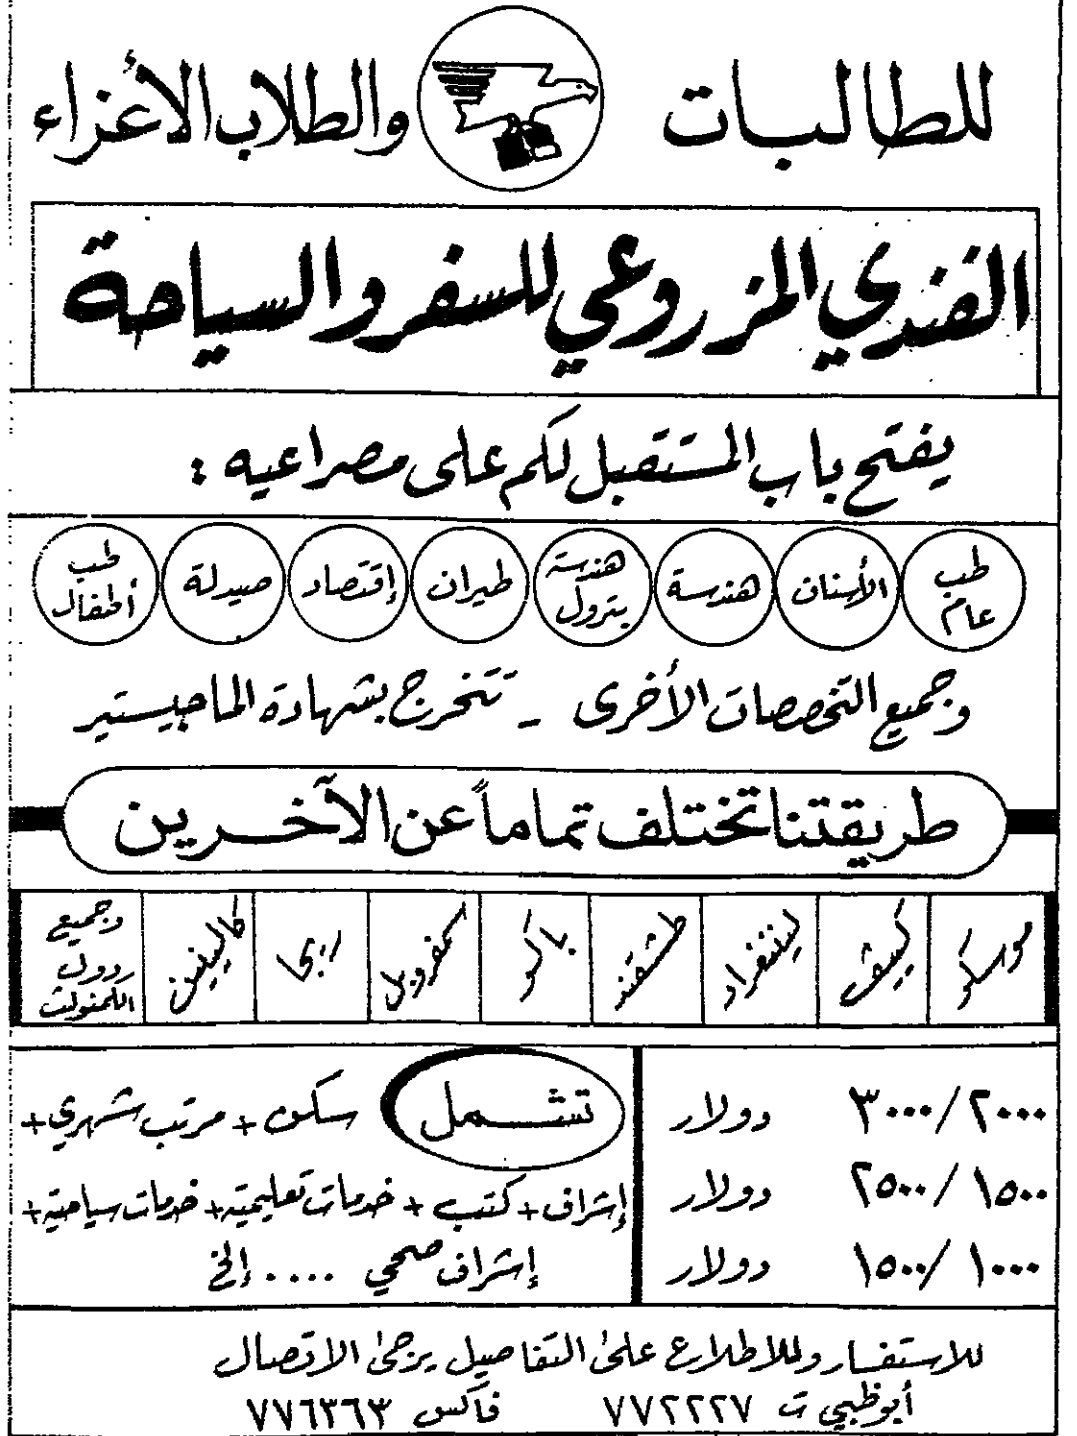 للطالبات والطلاب الأعزاء
الفندي المزروعي للسفر والسياحة
يفتح باب المستقبل لكم على مصراعيه :
طب عام
الأسنان
هندسة
هندسة بترول
طيران
إقتصاد
صيدلة
طب أطفال
وجميع التخصصات الأخرى - تتخرج بشهادة الماجيستير
طريقتنا تختلف تماماً عن الآخرين
موسكو
كييف
لينغراد
طشقند
باكو
سمفروبل
ريجا
كالينين
وجميع
دول
الكمنولث
٢٠٠٠/٣٠٠٠ دولار
١٥٠٠/٢٥٠٠ دولار
١٠٠٠/١٥٠٠ دولار
تشمل سكن + مرتب شهري +
إشراف + كتب + خدمات تعليمية + خدمات سياحية +
إشراف صحي .... إلخ
للاستفسار وللاطلاع على التفاصيل يرجى الاتصال
أبوظبي ت ٧٧٢٢٢٧ فاكس ٧٧٦٣٦٣